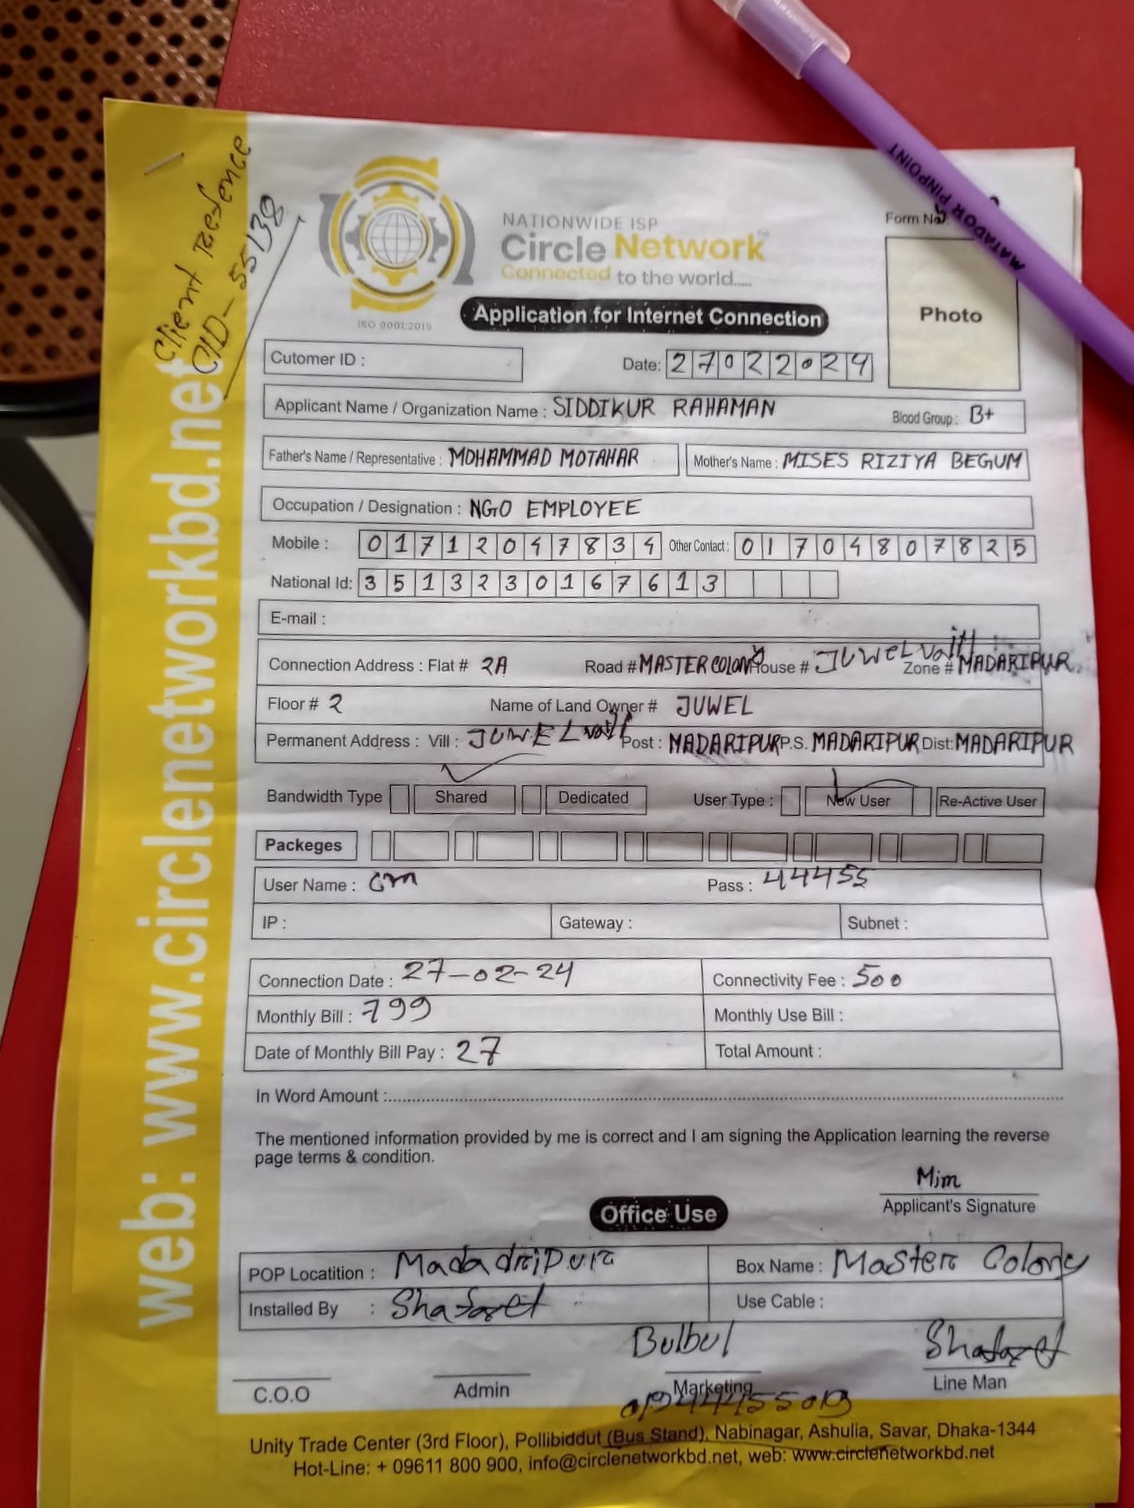 Client Refence
CID-55138
web: www.circlenetworkbd.net
NATIONWIDE ISP
Circle Network
Connected to the world.....
ISO 9001:2015
Application for Internet Connection
Form No
Photo
Cutomer ID :
Date: 27022024
Applicant Name / Organization Name : SIDDIKUR RAHAMAN Blood Group : B+
Father's Name / Representative : MOHAMMAD MOTAHAR Mother's Name : MISES RIZIYA BEGUM
Occupation / Designation : NGO EMPLOYEE
Mobile : 01712047834 Other Contact : 01704807825
National Id: 3513230167613
E-mail :
Connection Address : Flat # 2A Road # MASTER COLONY House # JUWEL Zone # MADARIPUR
Floor # 2 Name of Land Owner # JUWEL
Permanent Address : Vill : JUWEL Post : MADARIPUR P.S. MADARIPUR Dist: MADARIPUR
Bandwidth Type Shared Dedicated User Type : New User Re-Active User
Packeges
User Name : cm Pass : 44455
IP : Gateway : Subnet :
Connection Date : 27-02-24 Connectivity Fee : 500
Monthly Bill : 799 Monthly Use Bill :
Date of Monthly Bill Pay : 27 Total Amount :
In Word Amount :
The mentioned information provided by me is correct and I am signing the Application learning the reverse
page terms & condition.
Mim
Applicant's Signature
Office Use
POP Locatition : Box Name : Master Colony
Installed By : Use Cable :
Bulbul
C.O.O Admin Marketing Line Man
Unity Trade Center (3rd Floor), Pollibiddut (Bus Stand), Nabinagar, Ashulia, Savar, Dhaka-1344
Hot-Line: + 09611 800 900, info@circlenetworkbd.net, web: www.circlenetworkbd.net
MATADOR PINPOINT